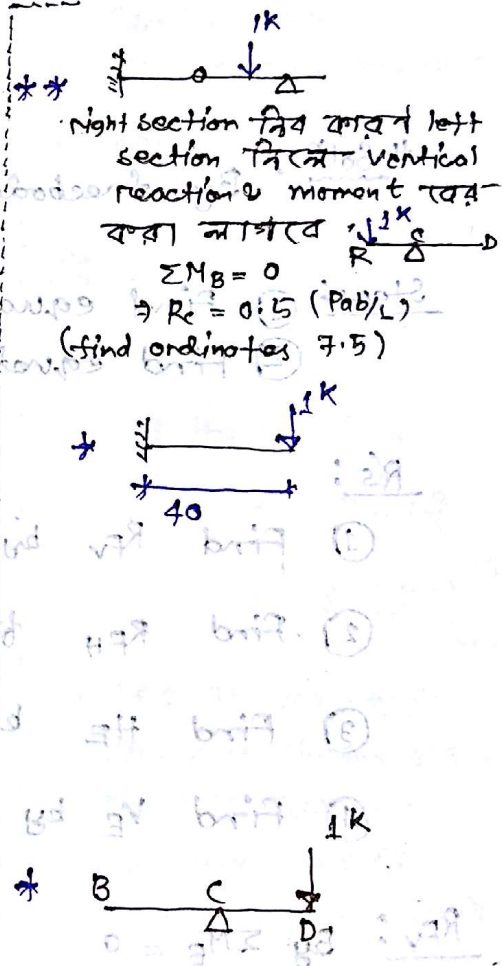 1K
** 
Right section নিব কারণ left
section নিলে vertical
reaction ও moment বের
করা লাগবে
1K
R C D
ΣM_B = 0
⇒ R_c = 0.5 (Pab/L)
(find ordinates 7.5)
* 1K
40
1K
* B C D